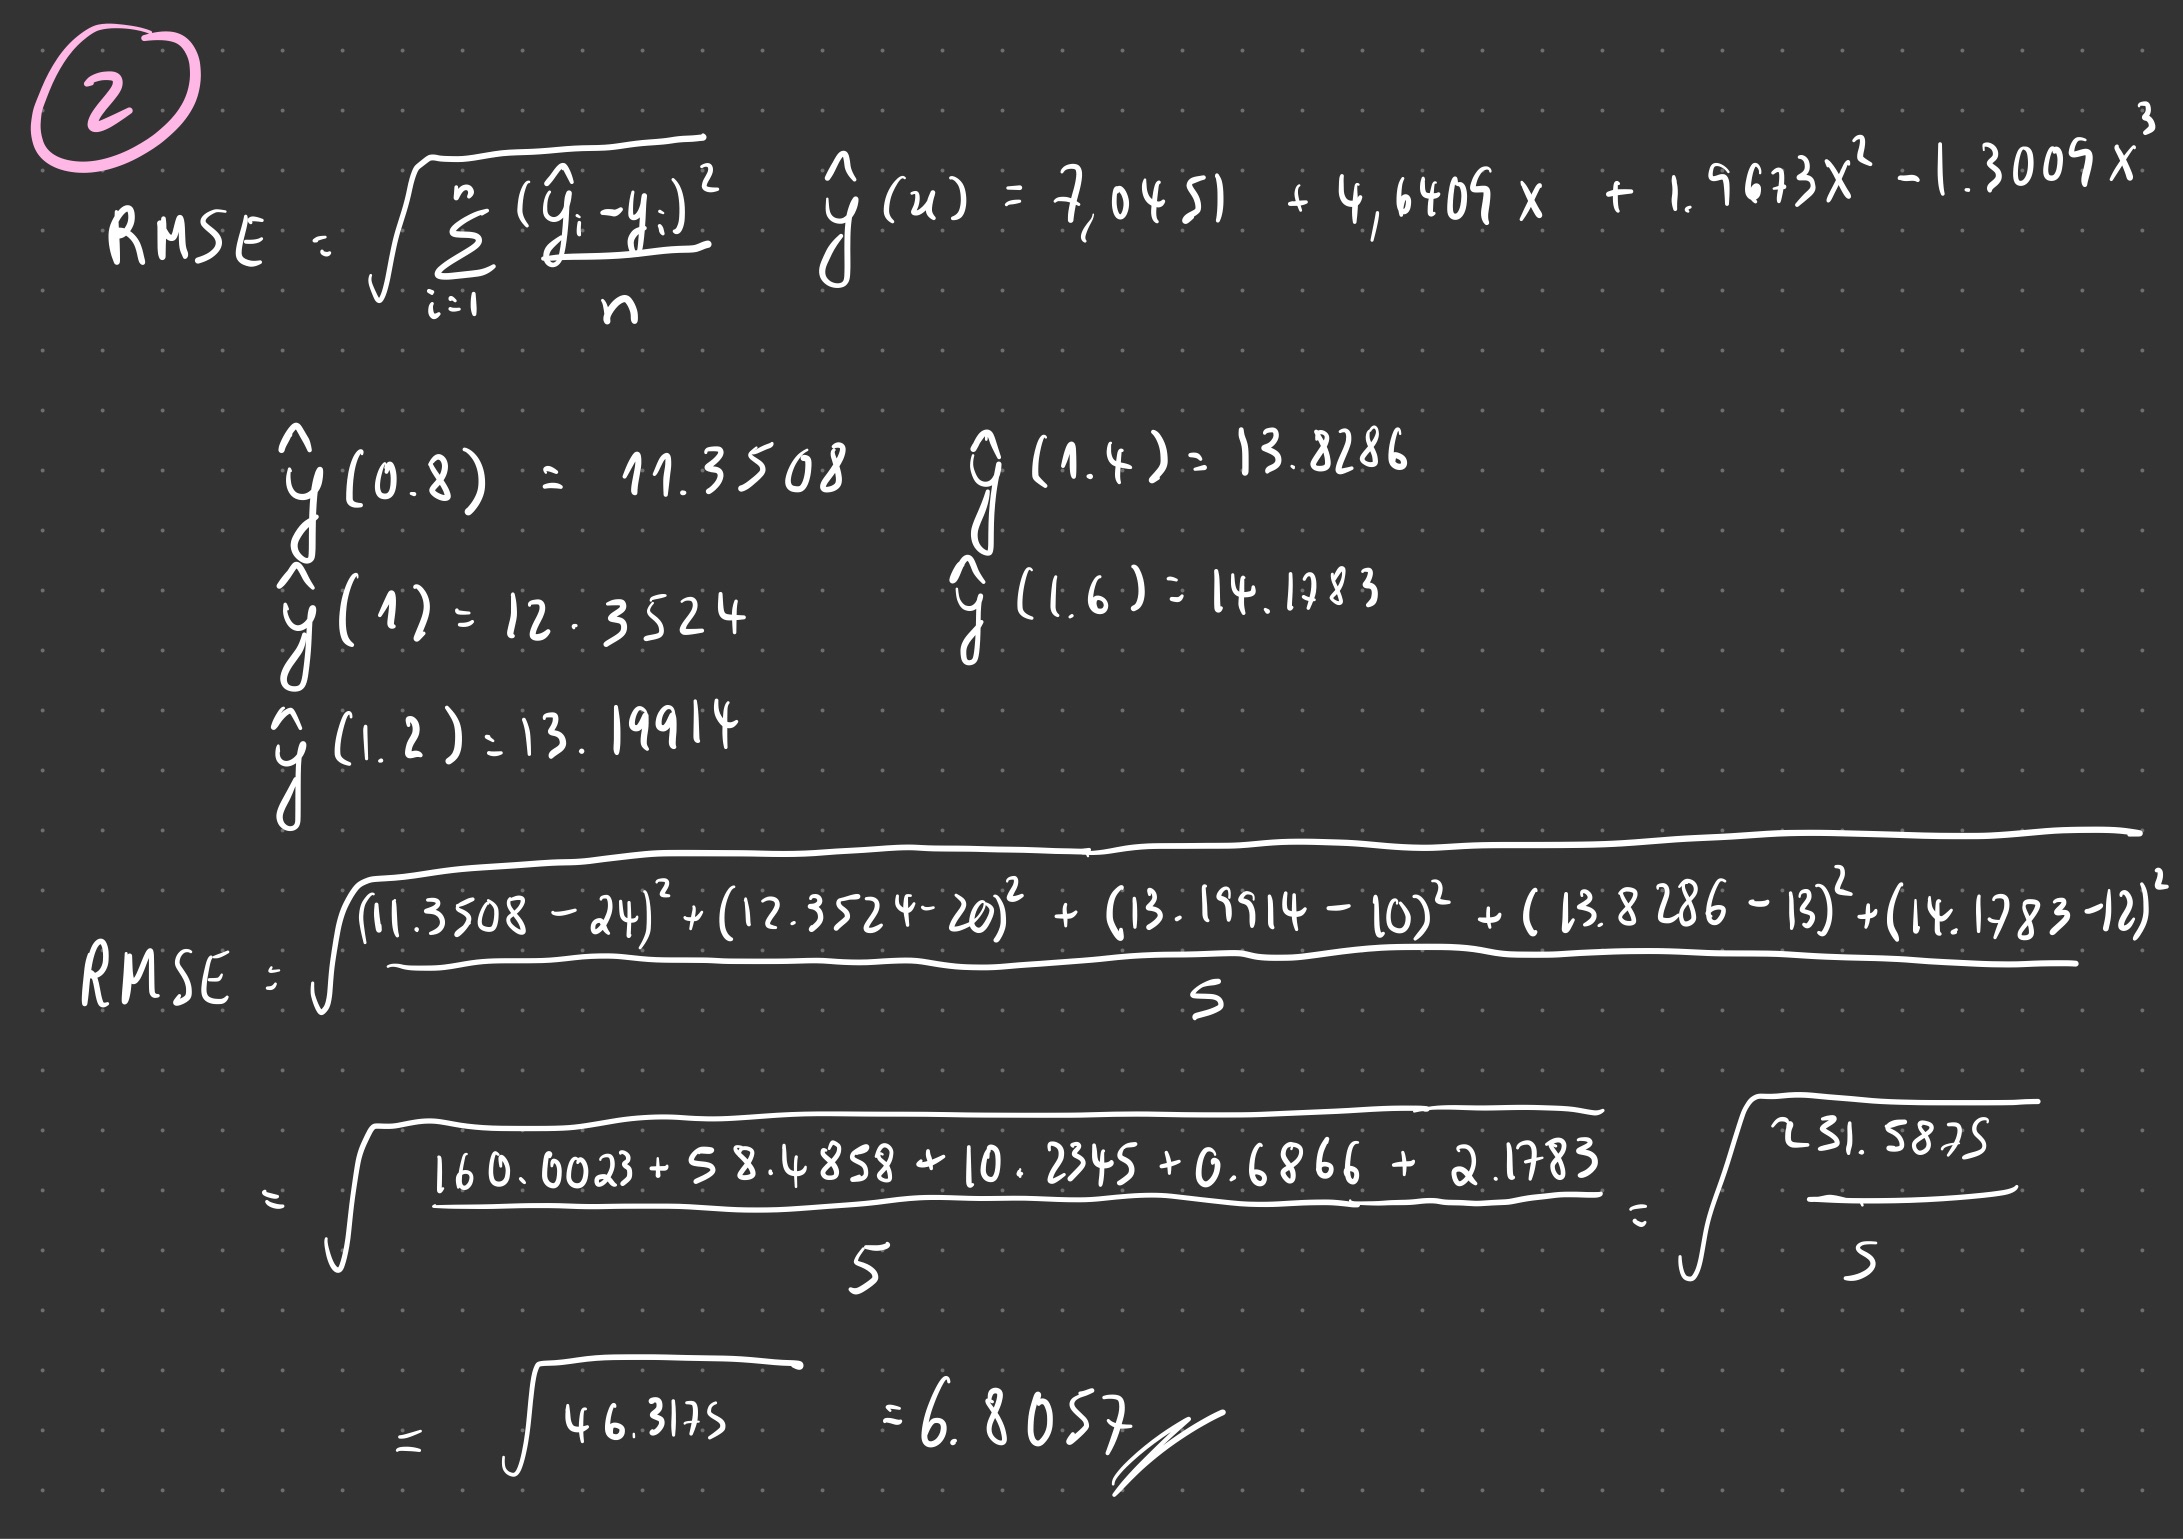 2
RMSE = √(∑_{i=1}^{n} (ŷ_i - y_i)² / n) ŷ(x) = 7,0451 + 4,6409x + 1.9673x² - 1.3009x³
ŷ(0.8) = 11.3508 ŷ(1.4) = 13.8286
ŷ(1) = 12.3524 ŷ(1.6) = 14.1783
ŷ(1.2) = 13.19914
RMSE = √(((11.3508 - 24)² + (12.3524 - 20)² + (13.19914 - 10)² + (13.8286 - 13)² + (14.1783 - 12)²) / 5)
= √((160.0023 + 58.4858 + 10.2345 + 0.6866 + 2.1783) / 5) = √(231.5875 / 5)
= √46.3175 = 6.8057